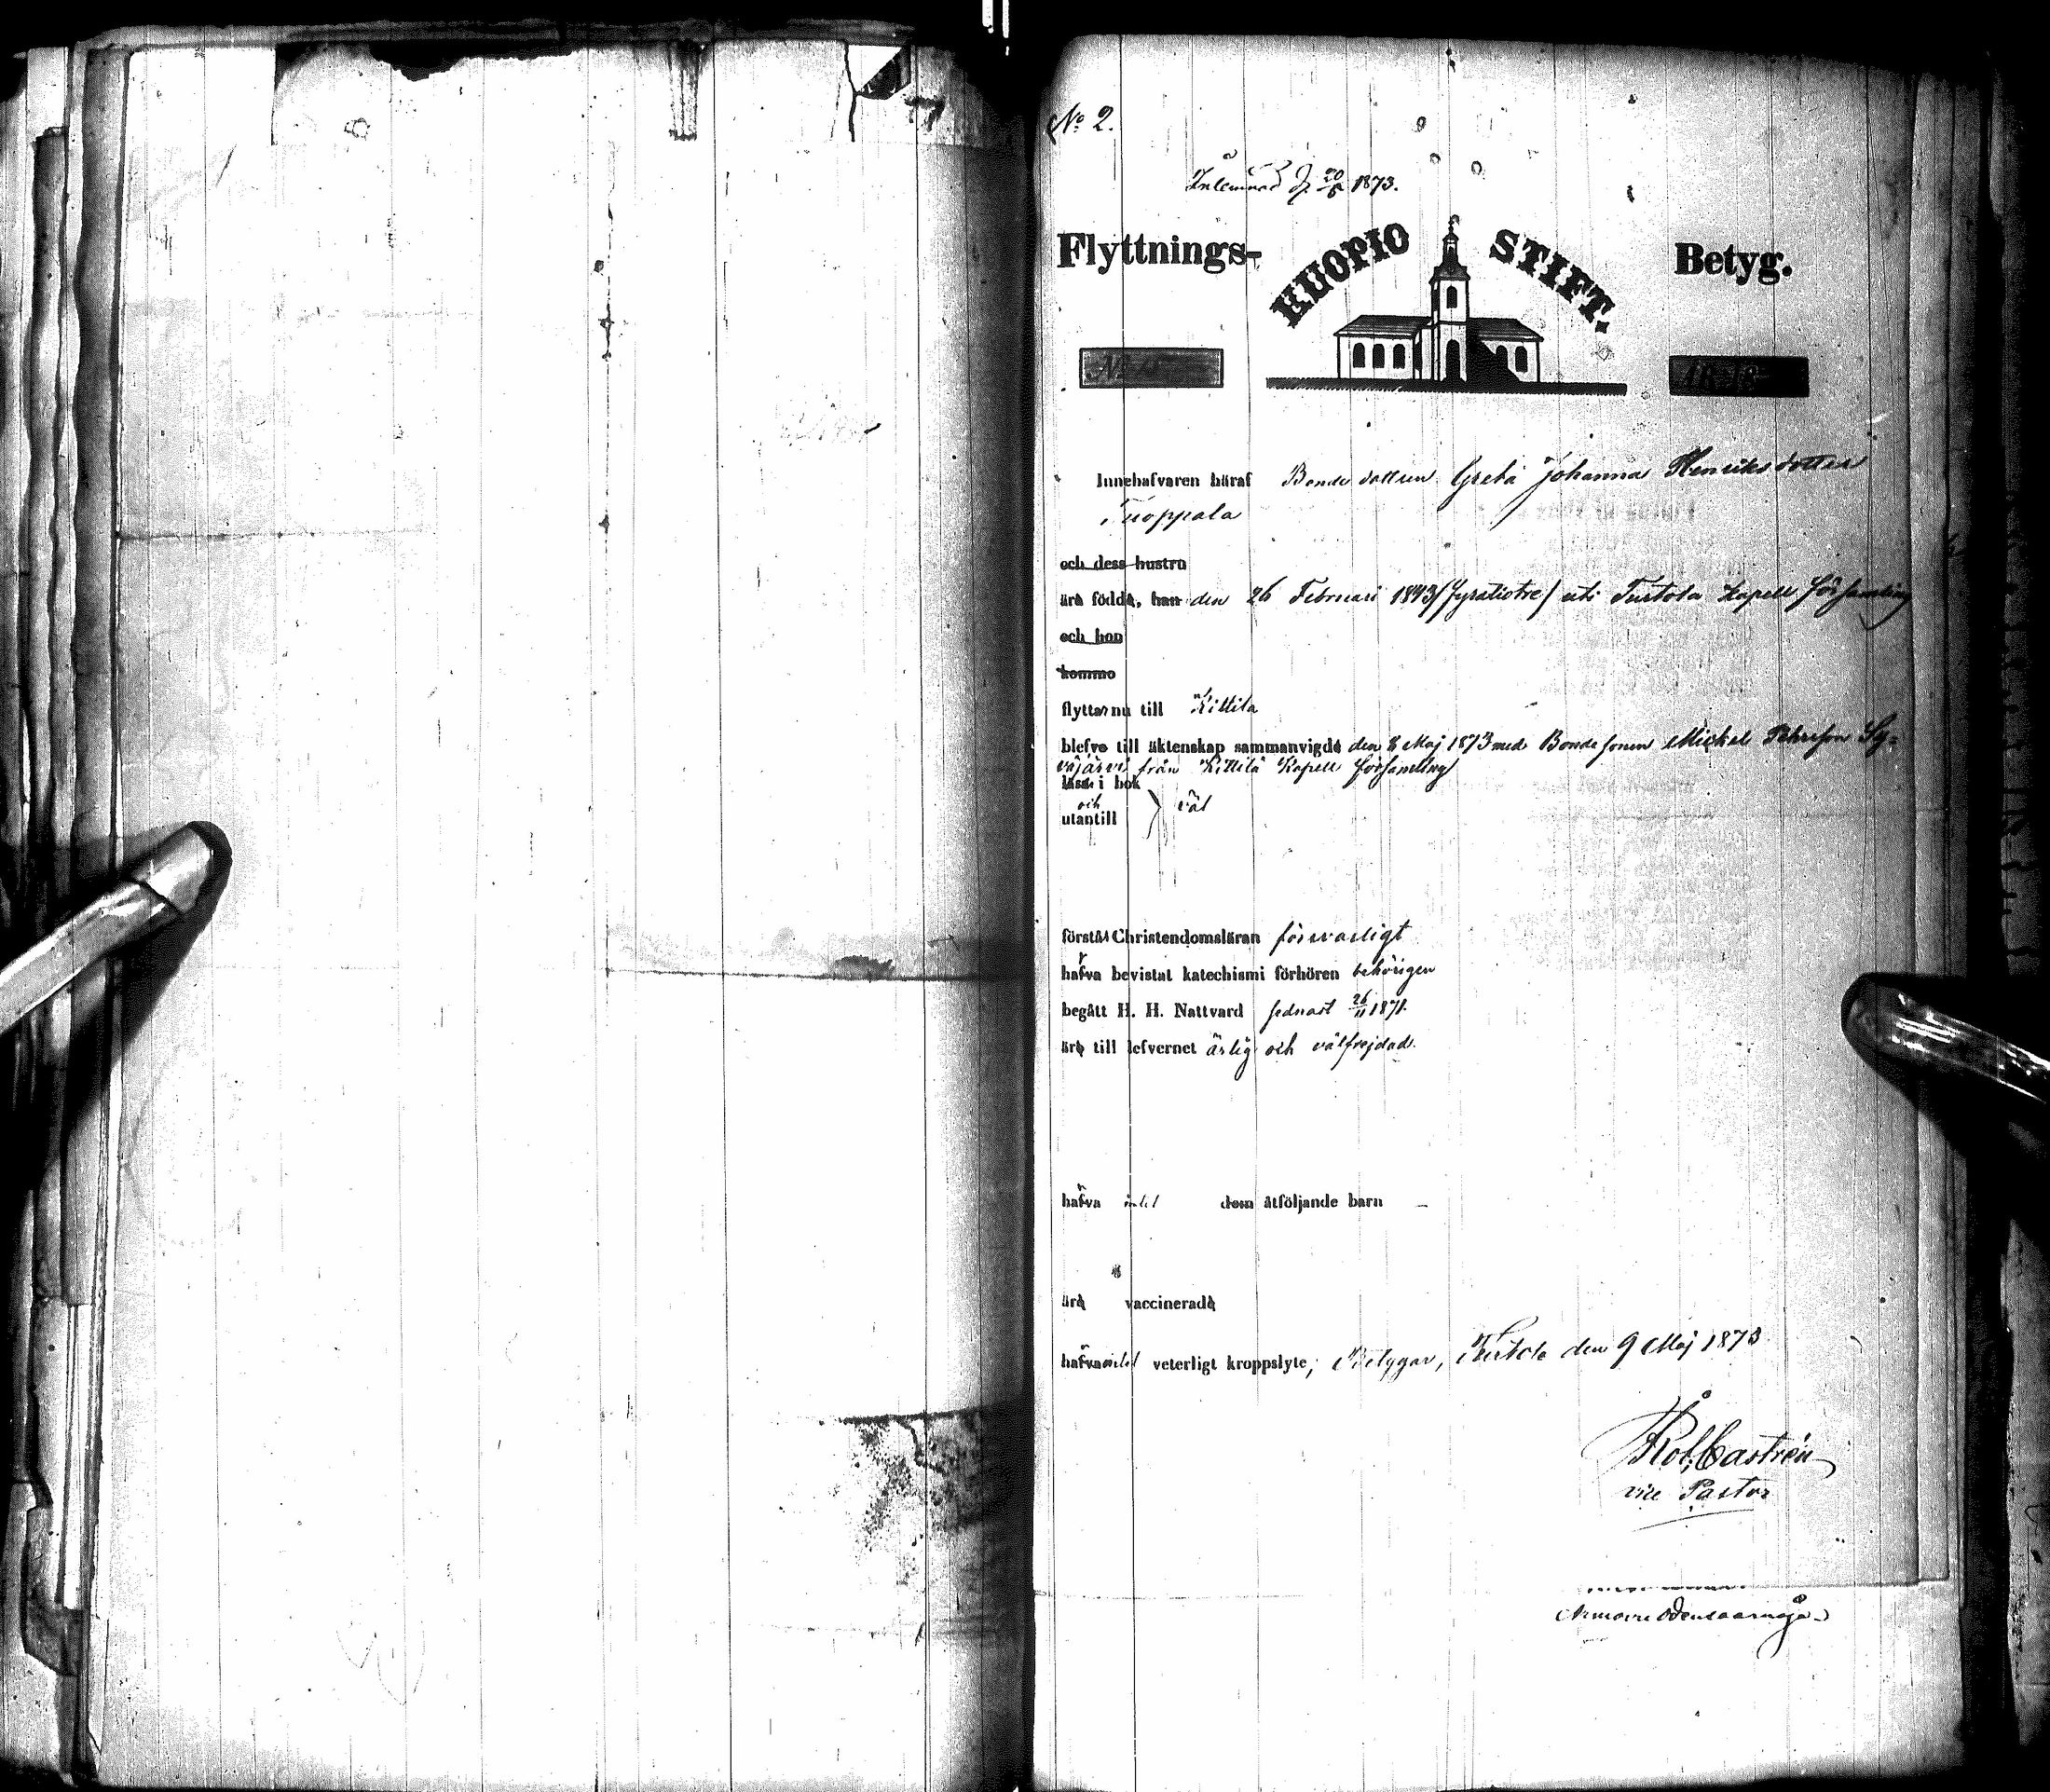 No 2.
Inlemnad d. 20/5 1873.
Flyttnings- KUOPIO STIFT. Betyg.
Innehafvaren häraf Bondedottren Greta Johanna Henriksdotter
Tuoppala
och dess hustru
äro födda, han den 26 Februari 1843 (fyratiotre) uti Turtola Kapell församling
och hon
kommo
flyttar nu till Kittilä
blefvo till äktenskap sammanvigde den 8 Maj 1873 med Bondesonen Mickel Pehrson Sy-
väjärvi från Kittilä Kapell församling
läsa i bok
och } väl
utantill
förstå Christendomsläran försvarligt
hafva bevistat katechismi förhören behörigen
begått H. H. Nattvard sednast 26/11 1871.
äro till lefvernet ärlig och välfrejdad.
hafva intet dem åtföljande barn –
äro vaccinerade
hafva intet veterligt kroppslyte, Betygar, Turtola den 9 Maj 1873
Castrén
vice Pastor